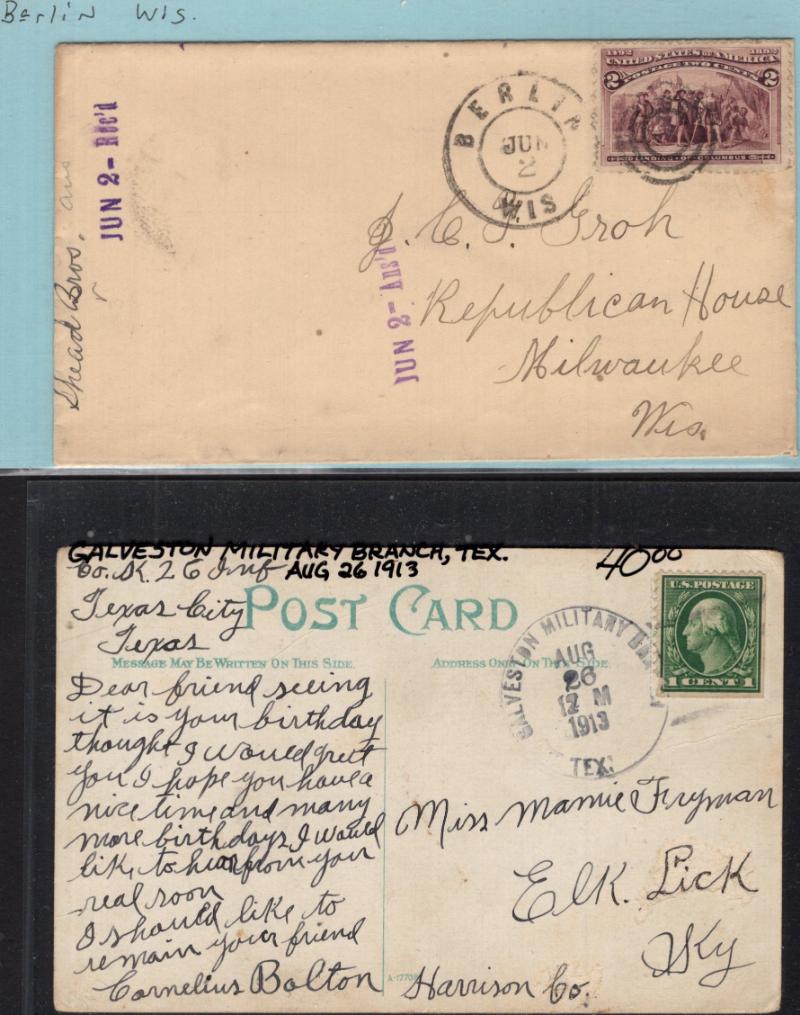 Berlin Wis.
1492 1892
UNITED STATES OF AMERICA
POSTAGE TWO CENTS
2 2
LANDING OF COLUMBUS
BERLIN
JUN
2
WIS
JUN 2- Rec'd
Shead Bros. ans
JUN 2- Ans'd
J. C. J. Groh
Republican House
Milwaukee
Wis.
GALVESTON MILITARY BRANCH, TEX.
AUG 26 1913
40 00
Co. K. 26 Inf
Texas City
Texas
POST CARD
MESSAGE MAY BE WRITTEN ON THIS SIDE.
ADDRESS ONLY ON THIS SIDE.
U.S. POSTAGE
1 CENT 1
GALVESTON MILITARY
AUG
26
12 M
1913
TEX.
Dear friend seeing
it is your birthday
thought I would greet
you I hope you have a
nice time and many
more birthdays I would
like to hear from your
real soon
I should like to
remain your friend
Cornelius Bolton
Miss Mamie Fryman
Elk. Lick
Ky
Harrison Co.